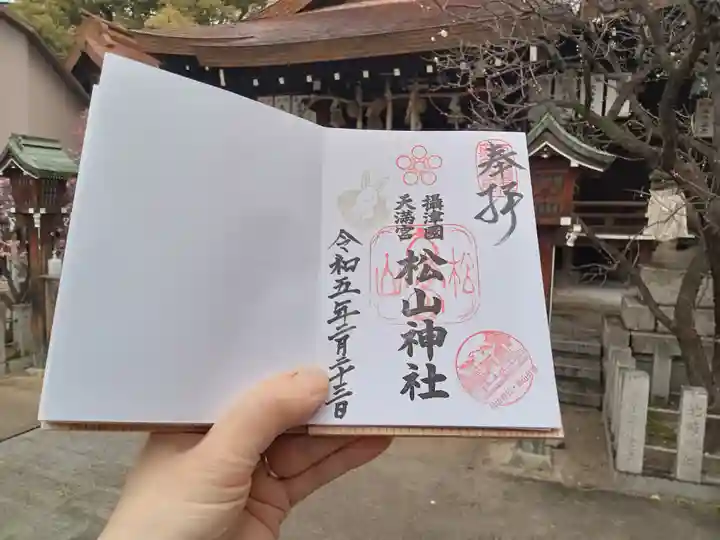 奉拝
攝津國
天満宮
松山神社
松山
令和五年二月二十三日